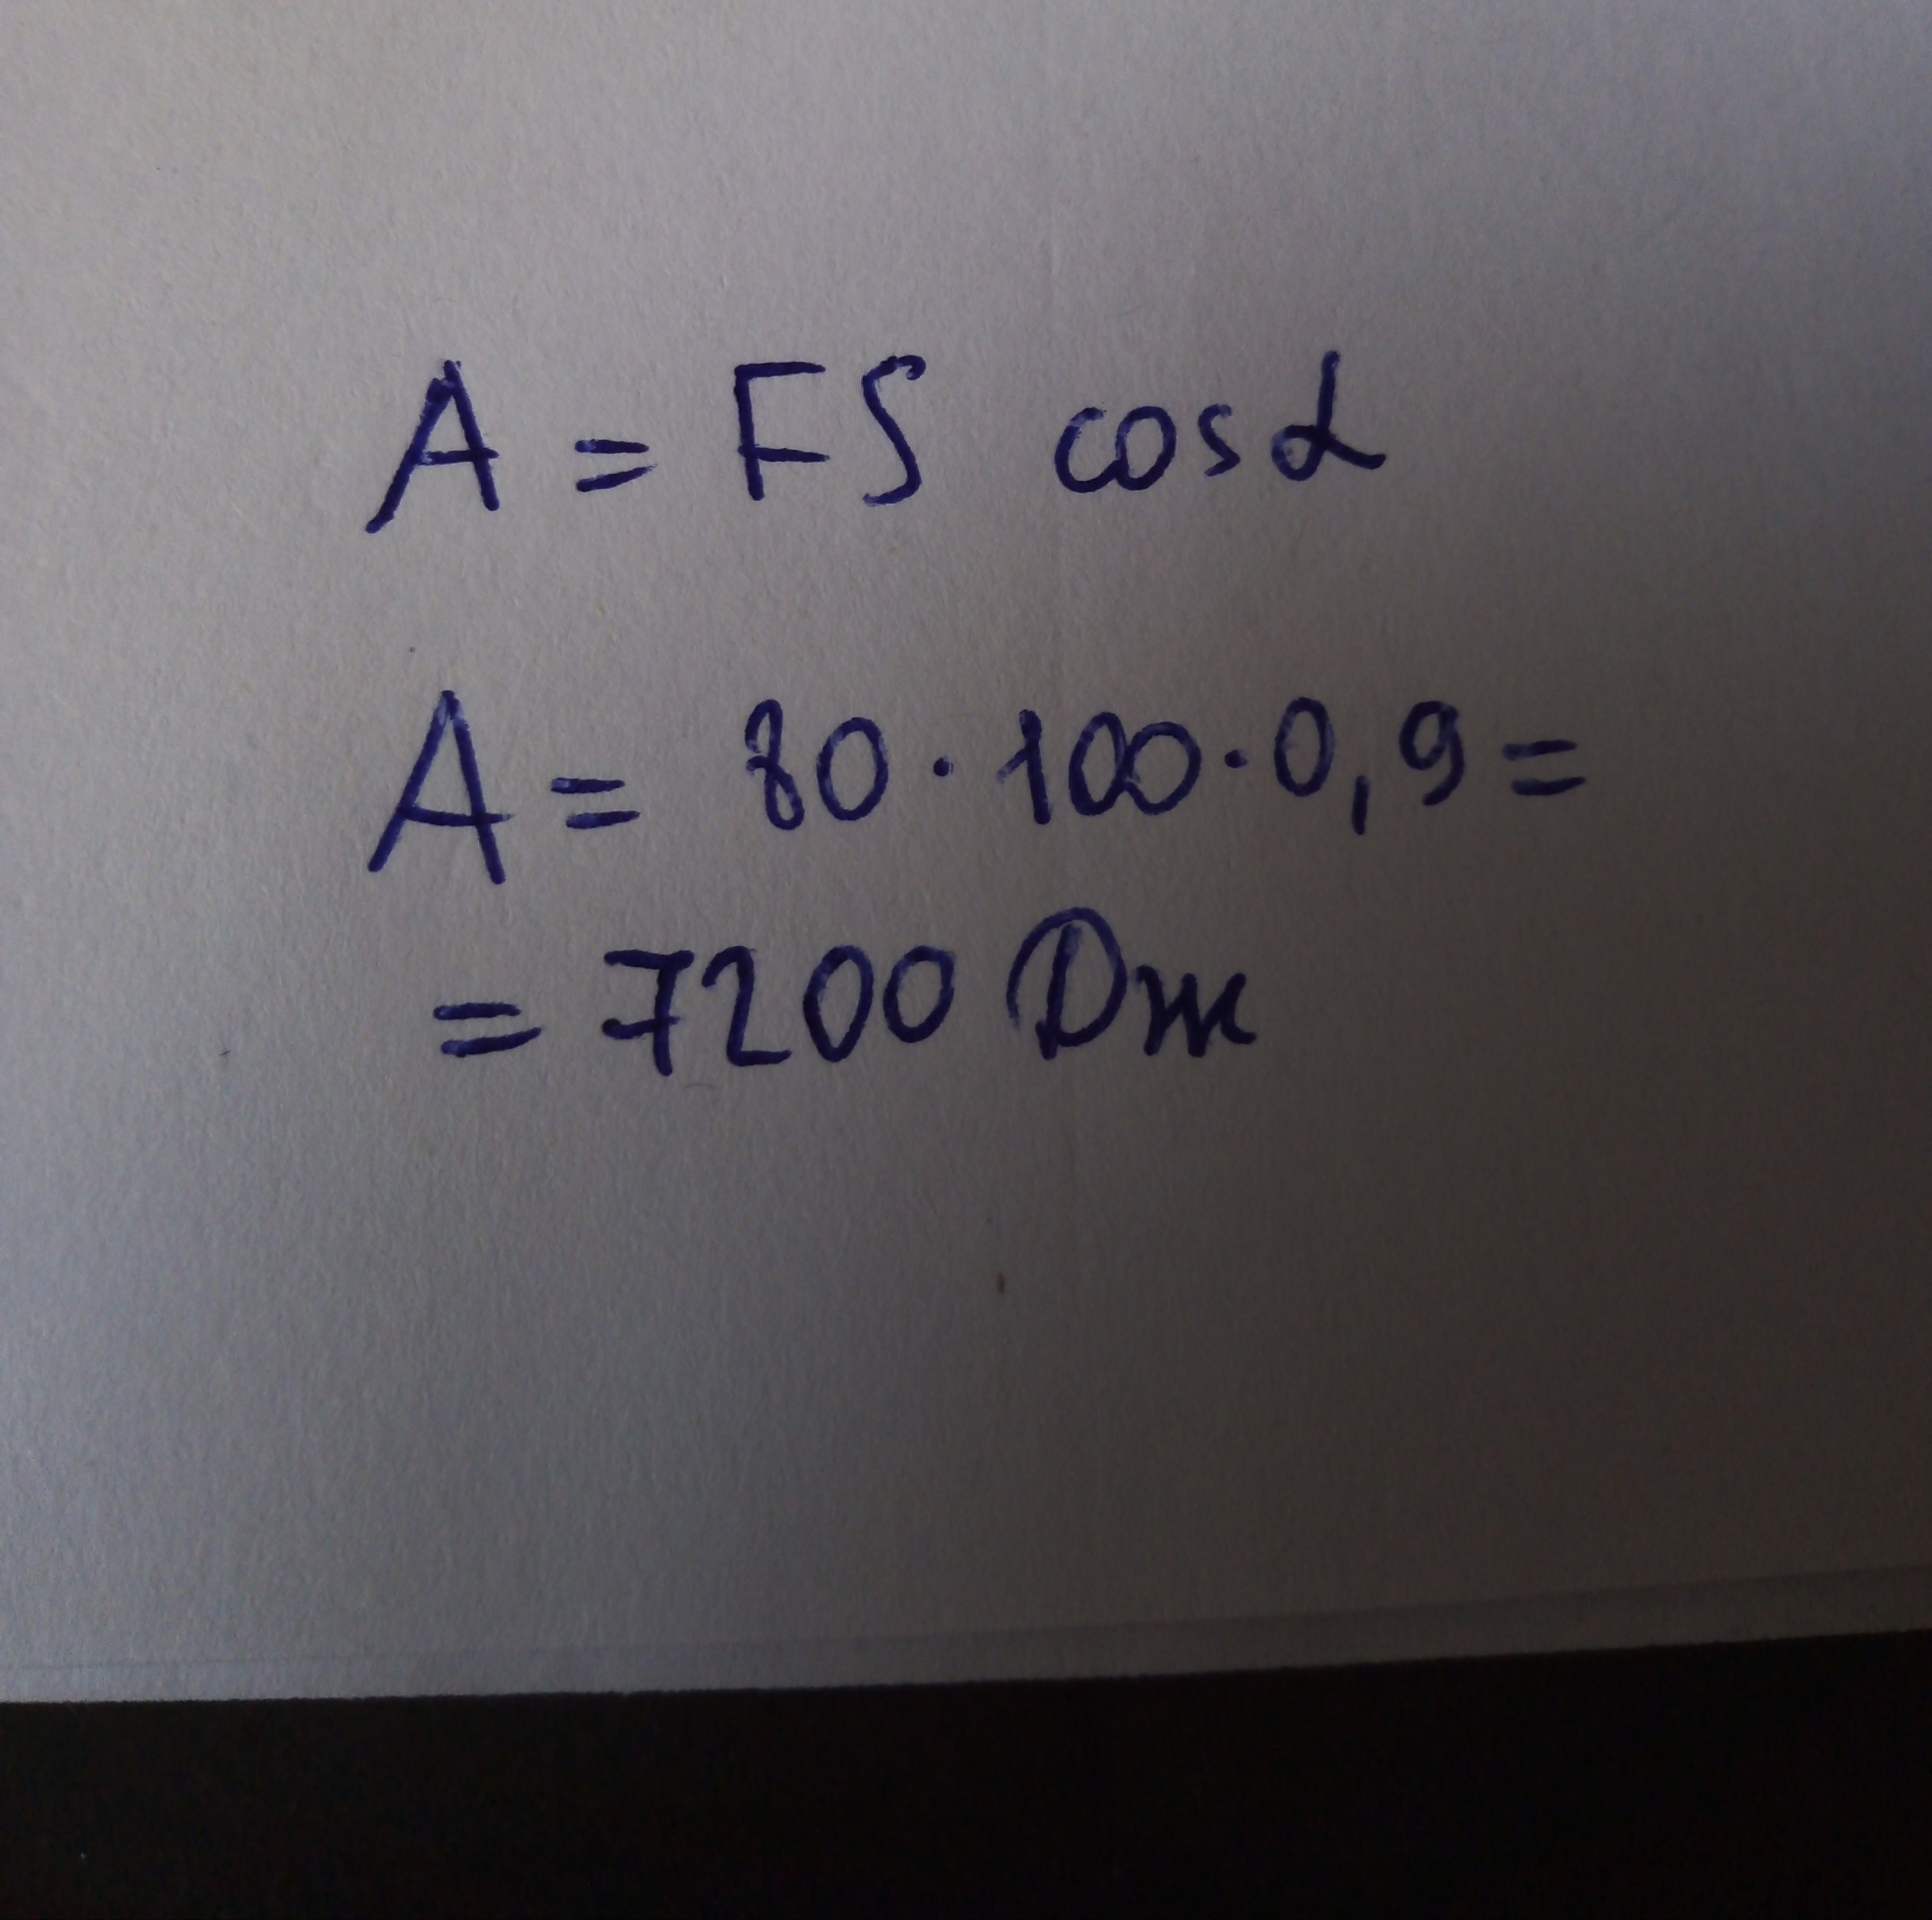 A = FS cosα
A = 80·100·0,9=
= 7200 Дж